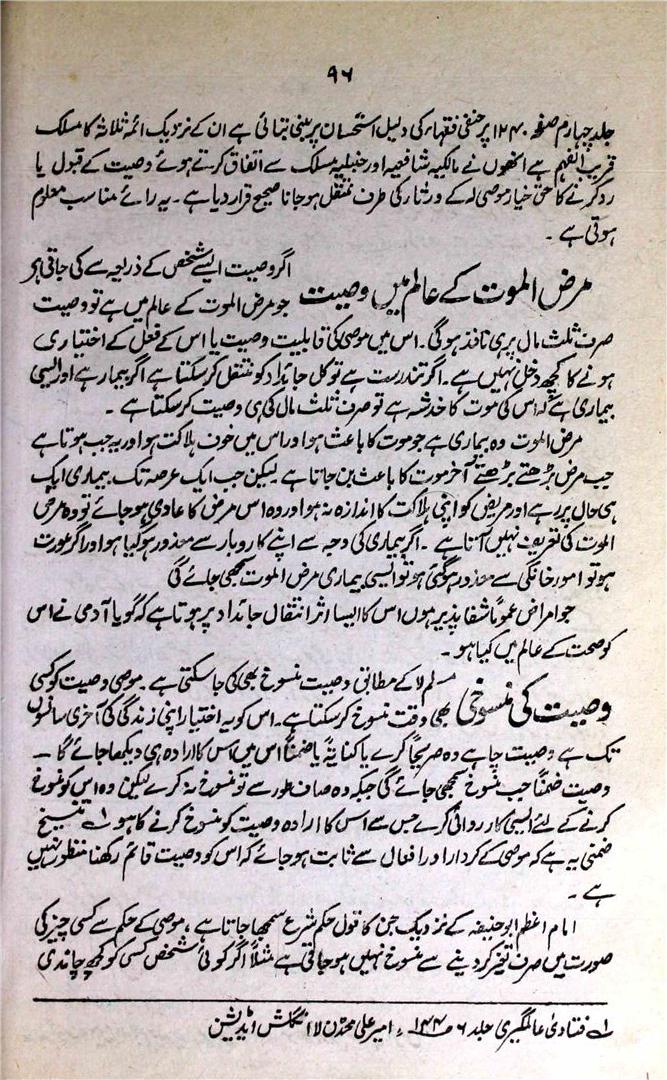 ۹۶
جلد چہارم صفحہ ۱۲۴۰ پر حنفی فقہاء کی دلیل استحسان پر مبنی بتائی ہے ان کے نزدیک ائمہ ثلاثہ کا مسلک
قریب الفہم ہے انھوں نے مالکیہ شافعیہ اور حنبلیہ مسلک سے اتفاق کرتے ہوئے وصیت کے قبول یا
رد کرنے کا حق خیار موصی لہ کے ورثار کی طرف منتقل ہو جانا صحیح قرار دیا ہے ۔ یہ رائے مناسب معلوم
ہوتی ہے ۔
مرض الموت کے عالم میں وصیت
اگر وصیت ایسے شخص کے ذریعہ سے کی جاتی ہو
جو مرض الموت کے عالم میں ہے تو وصیت
صرف ثلث مال پر ہی نافذ ہوگی ۔ اس میں موصی کی قابلیت وصیت یا اس کے فعل کے اختیاری
ہونے کا کچھ دخل نہیں ہے ۔ اگر تندرست ہے تو کل جائداد کو منتقل کر سکتا ہے اگر بیمار ہے اور ایسی
بیماری ہے کہ اس کی موت کا خدشہ ہے تو صرف ثلث مال کی ہی وصیت کر سکتا ہے ۔
مرض الموت وہ بیماری ہے جو موت کا باعث ہو اور اس میں خوف ہلاکت ہو اور یہ جب ہوتا ہے
جب مرض بڑھتے بڑھتے آخر موت کا باعث بن جاتا ہے لیکن جب ایک عرصہ تک بیماری ایک
ہی حال پر رہے اور مریض کو اپنی ہلاکت کا اندازہ نہ ہو اور وہ اس مرض کا عادی ہو جائے تو وہ مرض
الموت کی تعریف میں نہیں آتا ہے ۔ اگر بیماری کی وجہ سے اپنے کاروبار سے معذور ہو گیا ہو اور اگر عورت
ہو تو امور خانگی سے معذور ہو گئی ہو تو ایسی بیماری مرض الموت سمجھی جائے گی
جو امراض عموماً شفا پذیر ہوں اس کا ایسا اثر انتقال جائداد پر ہوتا ہے کہ گویا آدمی نے اس
کو صحت کے عالم میں کیا ہو ۔
وصیت کی منسوخی
مسلم لا کے مطابق وصیت منسوخ بھی کی جا سکتی ہے ۔ موصی وصیت کو کسی
بھی وقت منسوخ کر سکتا ہے ۔ اس کو یہ اختیار اپنی زندگی کی آخری سانسوں
تک ہے وصیت چاہے وہ صریحاً کرے یا کنایۃً یا ضمناً اس میں اس کا ارادہ ہی دیکھا جائے گا ۔
وصیت ضمناً جب منسوخ سمجھی جائے گی جبکہ وہ صاف طور سے تو منسوخ نہ کرے لیکن وہ اس کو منسوخ
کرنے کے لئے ایسی کارروائی کرے جس سے اس کا ارادہ وصیت کو منسوخ کرنے کا ہو ۱؎ تنسیخ
ضمنی یہ ہے کہ موصی کے کردار اور افعال سے ثابت ہو جائے کہ اس کو وصیت قائم رکھنا منظور نہیں
ہے ۔
امام اعظم ابو حنیفہ کے نزدیک جن کا قول حکم شرع سمجھا جاتا ہے ، موصی کے حکم سے کسی چیز کی
صورت میں صرف تغیر کر دینے سے منسوخ نہیں ہو جاتی ہے مثلاً اگر کوئی شخص کسی کو کچھ چاندی
۱؎ فتاوی عالمگیری جلد ۶ ص ۱۴۴ ، امیر علی محمڈن لا انگلش ایڈیشن